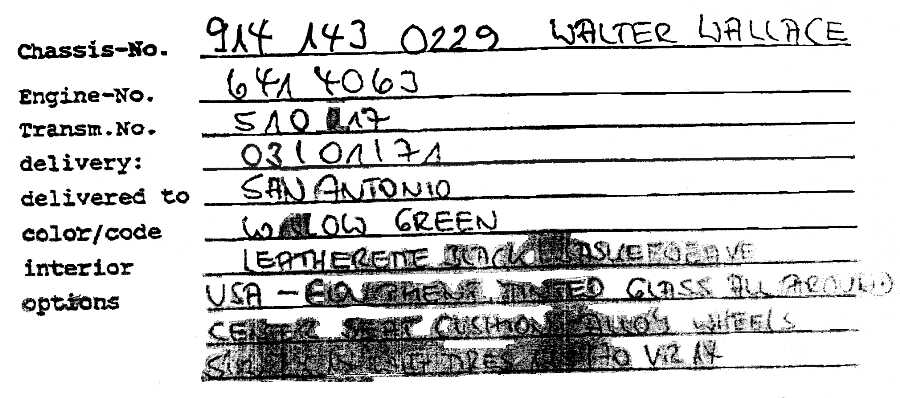 Chassis-No. 914 143 0229 WALTER WALLACE
Engine-No. 641 4063
Transm.No. 510 17
delivery: 03/01/71
delivered to SAN ANTONIO
color/code GREEN
interior LEATHERETTE BLACK
options USA - EQUIPMENT TINTED GLASS ALL AROUND
CENTER SEAT CUSHION ALLOY WHEELS